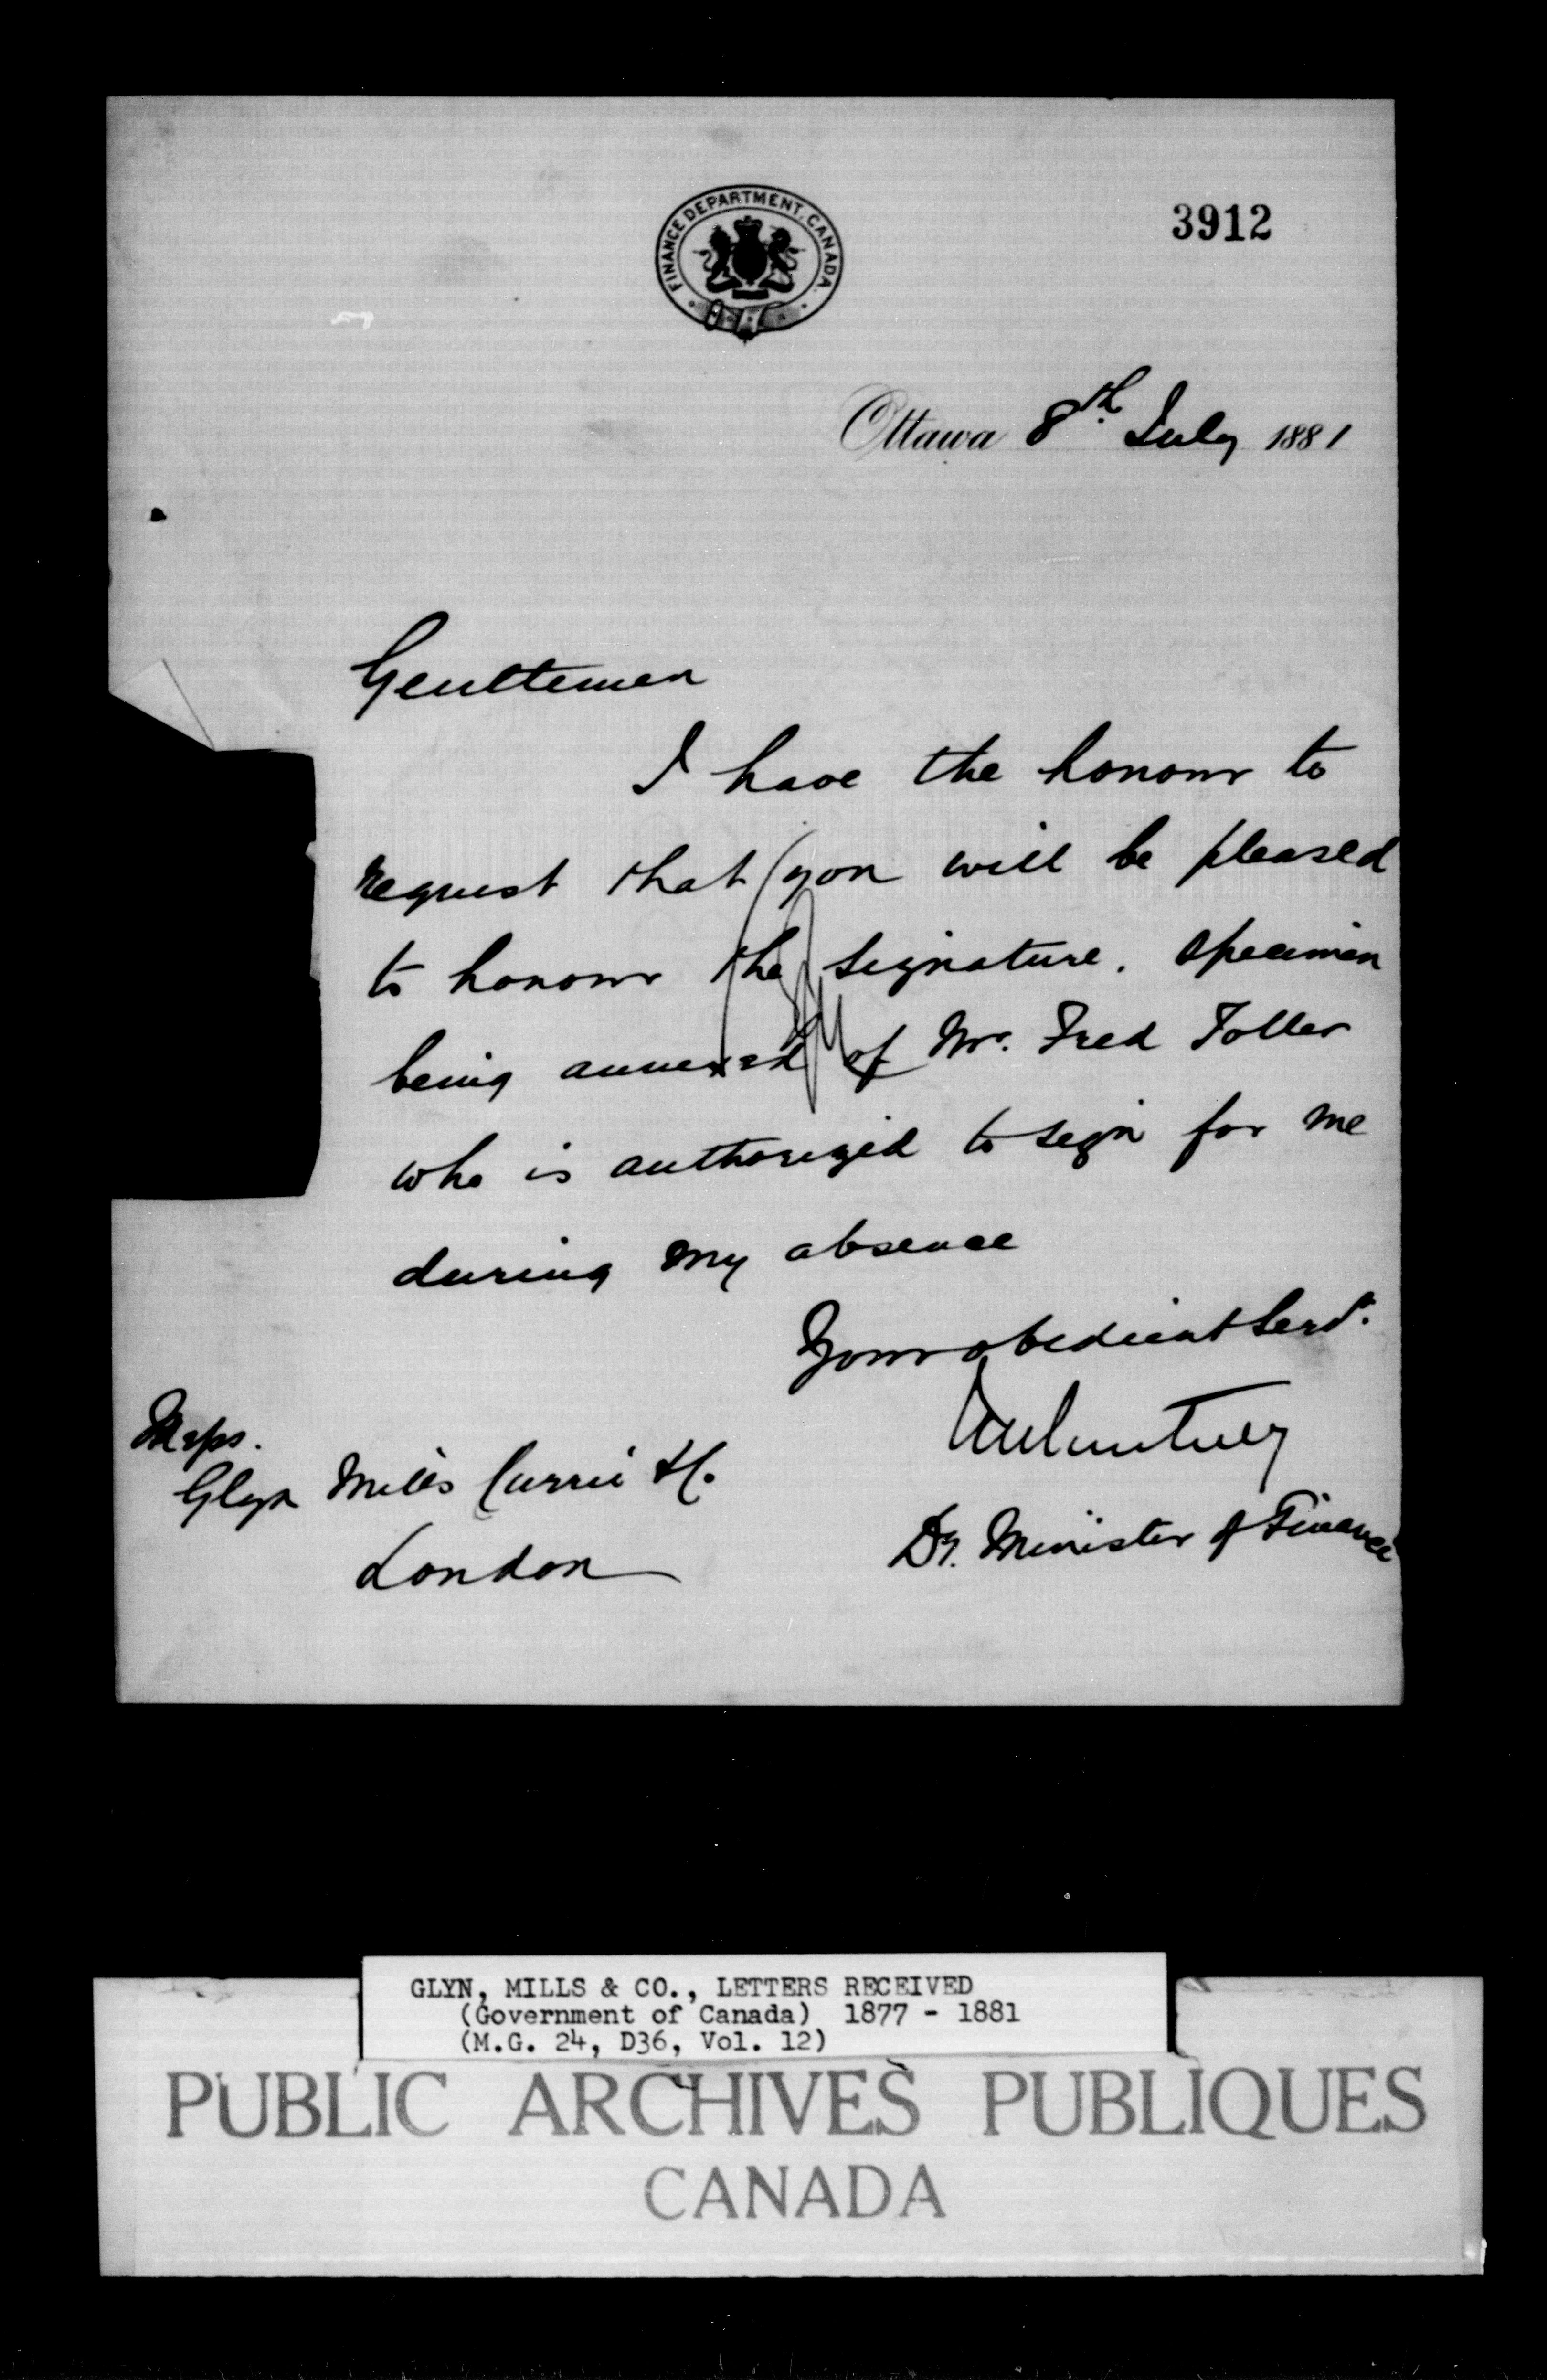 FINANCE DEPARTMENT, CANADA.
3912
Ottawa 8th July 1881
Gentlemen
I have the honour to
request that you will be pleased
to honour the signature, specimen
being annexed of Mr. Fred Toller
who is authorized to sign for me
during my absence
Your obedient Servt.
Dy. Minister of Finance
Messs.
Glyn Mills Currie & Co.
London
GLYN, MILLS & CO., LETTERS RECEIVED
(Government of Canada) 1877 - 1881
(M.G. 24, D36, Vol. 12)
PUBLIC ARCHIVES PUBLIQUES
CANADA